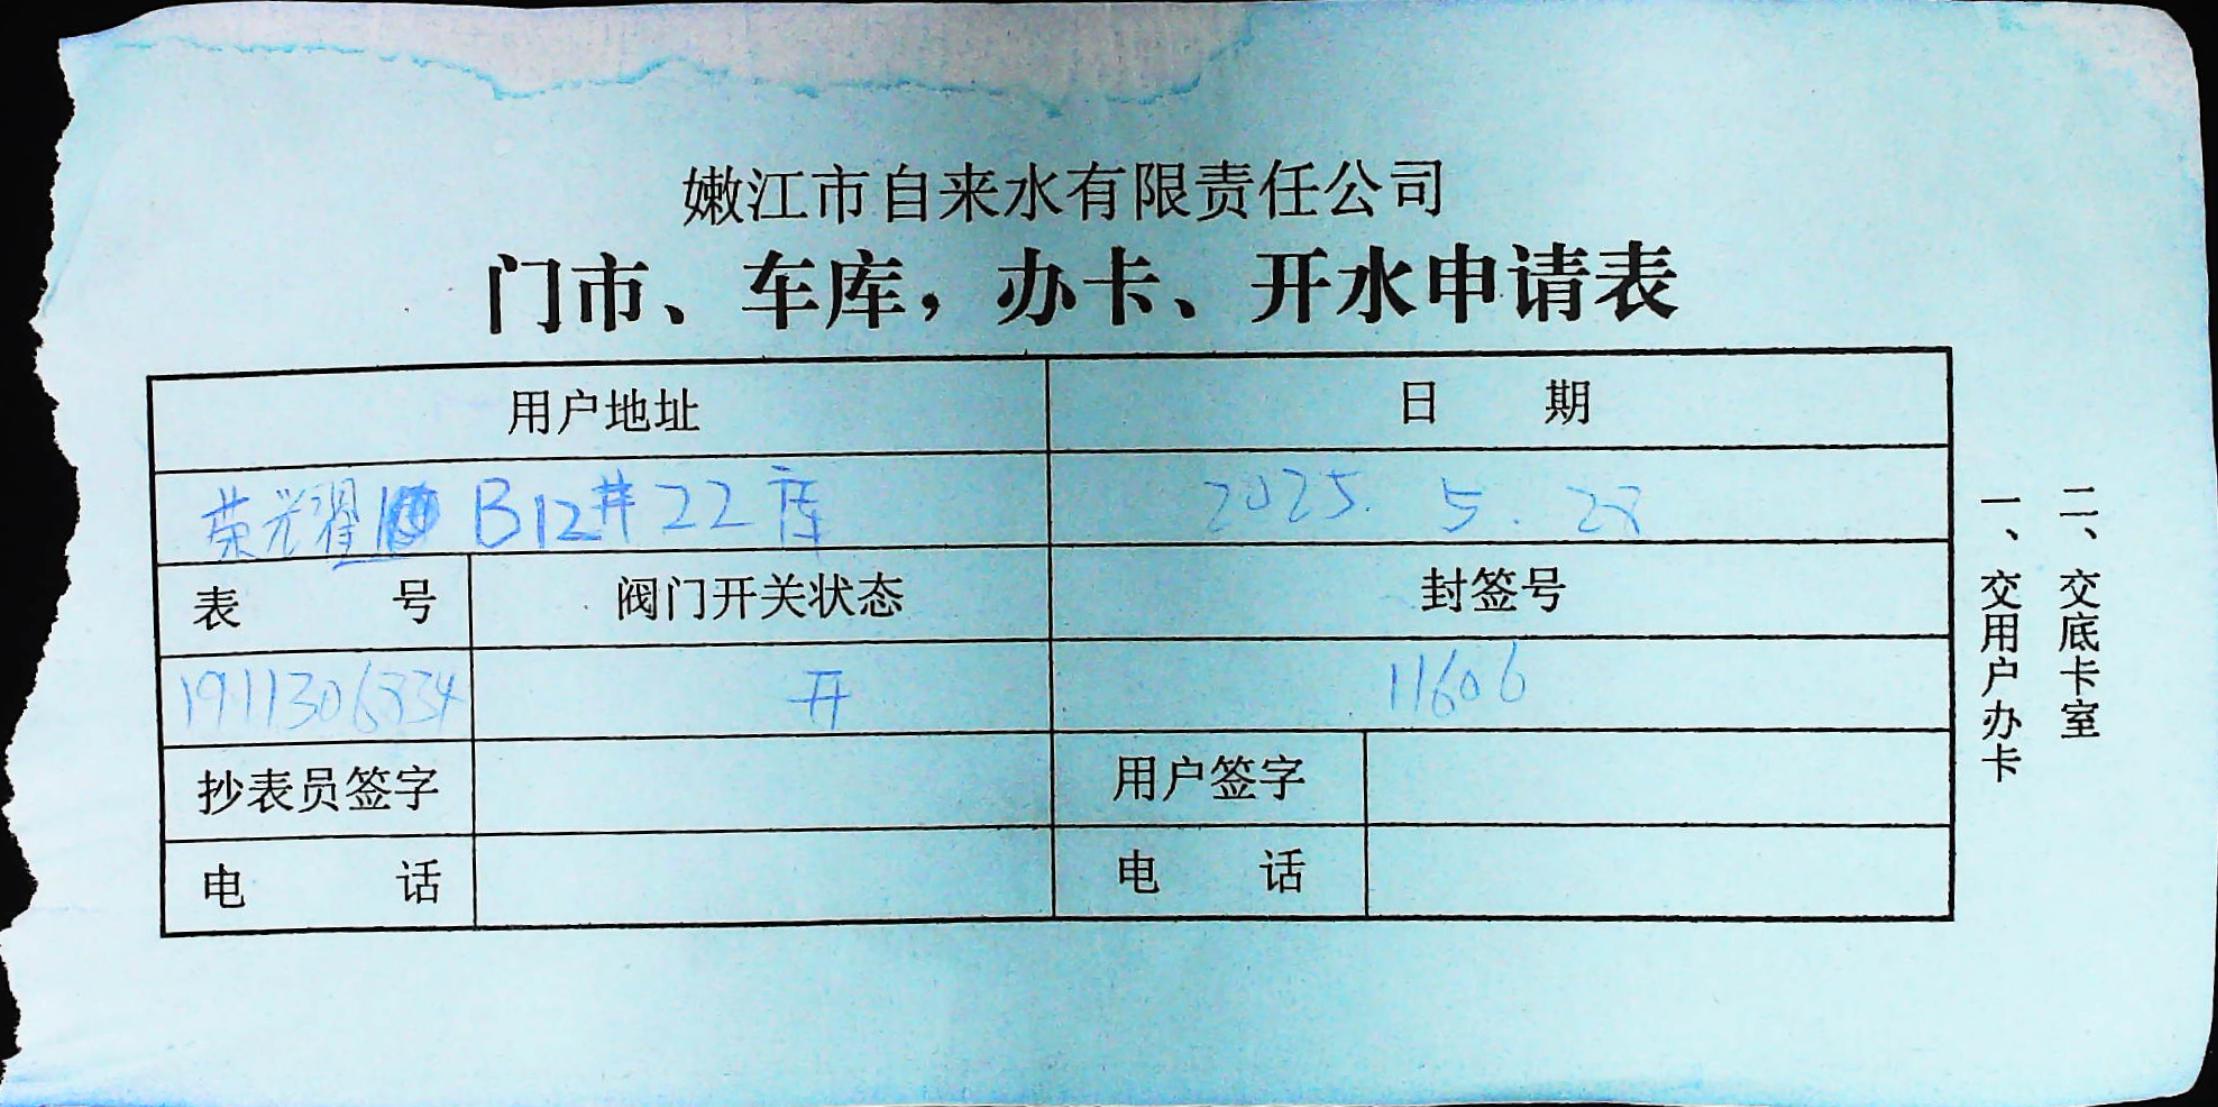 嫩江市自来水有限责任公司
门市、车库，办卡、开水申请表
用户地址 日 期
荣光耀 B12# 22库 2025. 5. 28
表 号 阀门开关状态 封签号
1911306334 开 11606
抄表员签字 用户签字
电 话 电 话
一、交用户办卡
二、交底卡室